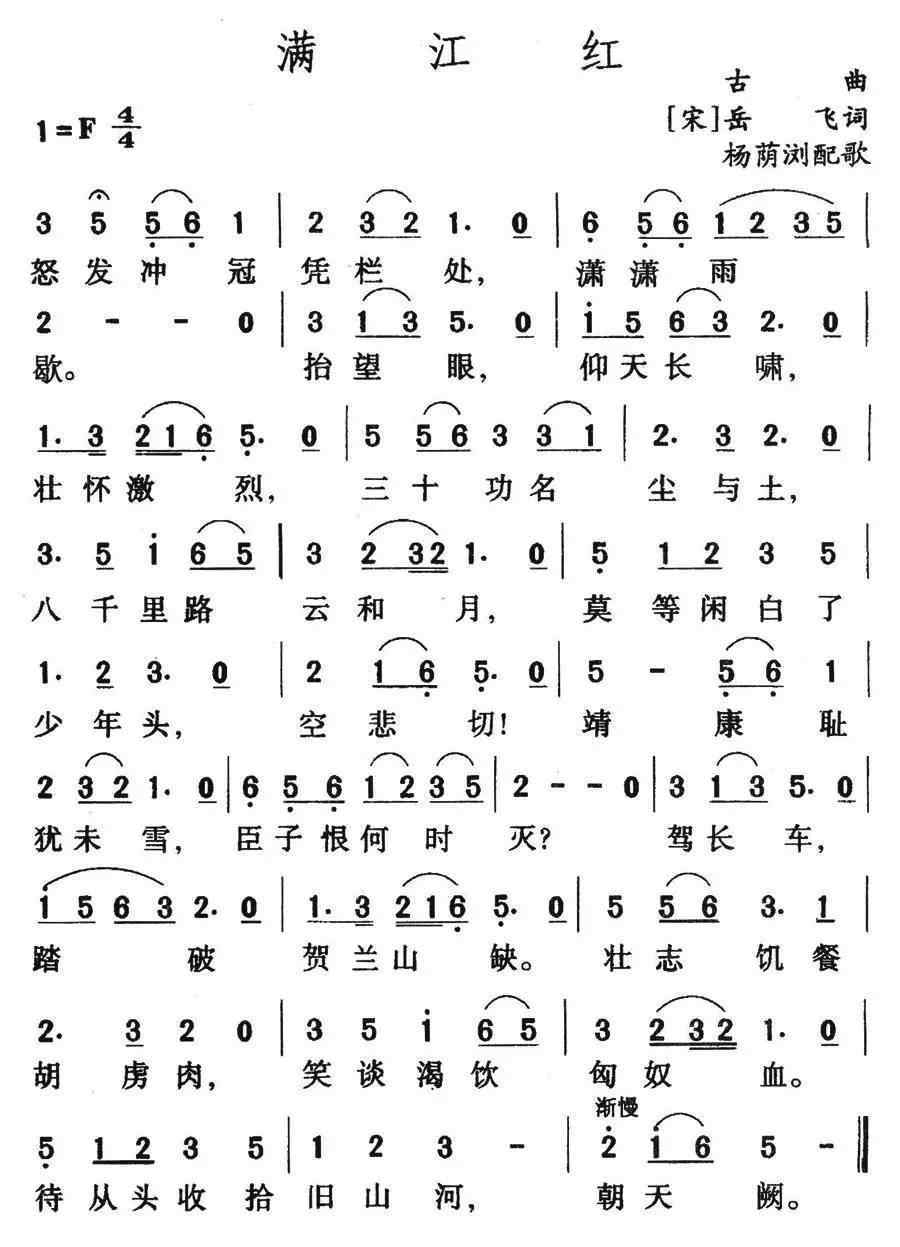 满江红
古曲
1=F 4/4
[宋]岳飞词
杨荫浏配歌
3 5 5 6 1 | 2 3 2 1. 0 | 6 5 6 1 2 3 5 |
怒发冲冠凭栏处，潇潇雨
2 - - 0 | 3 1 3 5. 0 | 1 5 6 3 2. 0 |
歇。抬望眼，仰天长啸，
1. 3 2 1 6 5. 0 | 5 5 6 3 3 1 | 2. 3 2. 0 |
壮怀激烈，三十功名尘与土，
3. 5 1 6 5 | 3 2 3 2 1. 0 | 5 1 2 3 5 |
八千里路云和月，莫等闲白了
1. 2 3. 0 | 2 1 6 5. 0 | 5 - 5 6 1 |
少年头，空悲切！靖康耻
2 3 2 1. 0 | 6 5 6 1 2 3 5 | 2 - - 0 | 3 1 3 5. 0 |
犹未雪，臣子恨何时灭？驾长车，
1 5 6 3 2. 0 | 1. 3 2 1 6 5. 0 | 5 5 6 3. 1 |
踏破贺兰山缺。壮志饥餐
2. 3 2 0 | 3 5 1 6 5 | 3 2 3 2 1. 0 |
胡虏肉，笑谈渴饮匈奴血。
渐慢
5 1 2 3 5 | 1 2 3 - | 2 1 6 5 - ‖
待从头收拾旧山河，朝天阙。